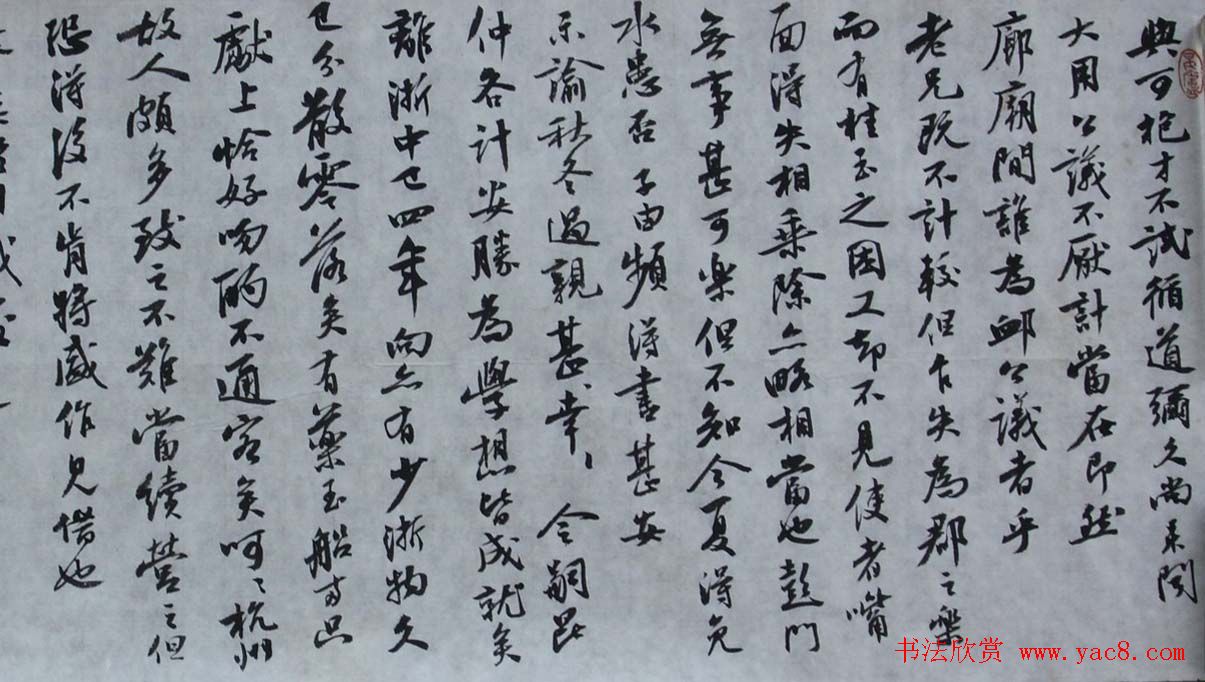 與可抱才不試循道彌久尚未聞
大用公議不厭計當在即然
廊廟間誰為卹公議者乎
老兄既不計較但乍失為郡之樂
而有桂玉之困又却不見使者嘴
面得失相乘除亦略相當也彭門
無事甚可樂但不知今夏得免
水患否子由頻得書甚安
示諭秋冬過親甚幸令嗣昆
仲各計安勝為學想皆成就矣
離浙中已四年向亦有少浙物久
已分散零落矣有藥玉船兩隻
獻上恰好吻酌不通客矣呵呵杭州
故人頗多致之不難當續營之但
恐得後不肯將盛作見借也
书法欣赏 www.yac8.com